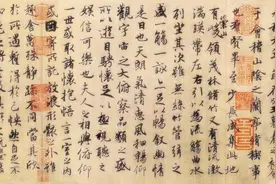 于會稽山陰之蘭亭脩稧事
也群賢畢至少長咸集此地
有崇山峻領茂林脩竹又有清流激
湍暎帶左右引以為流觴曲水
列坐其次雖無絲竹管弦之
盛一觴一詠亦足以暢敘幽情
是日也天朗氣清惠風和暢仰
觀宇宙之大俯察品類之盛
所以遊目騁懷足以極視聽之
娛信可樂也夫人之相與俯仰
一世或取諸懷抱悟言一室之內
或因寄所託放浪形骸之外雖
趣舍萬殊靜躁不同當其欣
於所遇蹔得於己